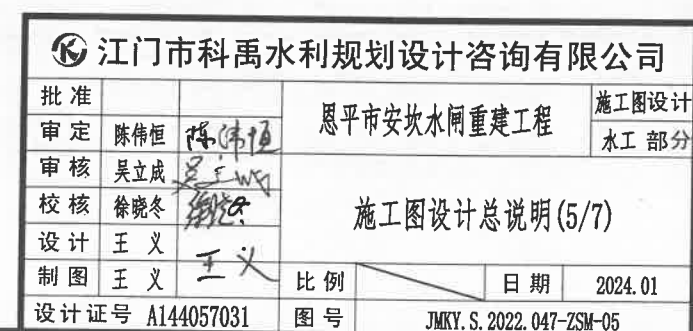 江门市科禹水利规划设计咨询有限公司
批准
恩平市安坎水闸重建工程
施工图设计
审定 陈伟恒 陈伟恒
水工 部分
审核 吴立成 吴立成
校核 徐晓冬 徐晓冬
施工图设计总说明(5/7)
设计 王义
王义
制图 王义 比例 日期 2024.01
设计证号 A144057031 图号 JMKY.S.2022.047-ZSM-05